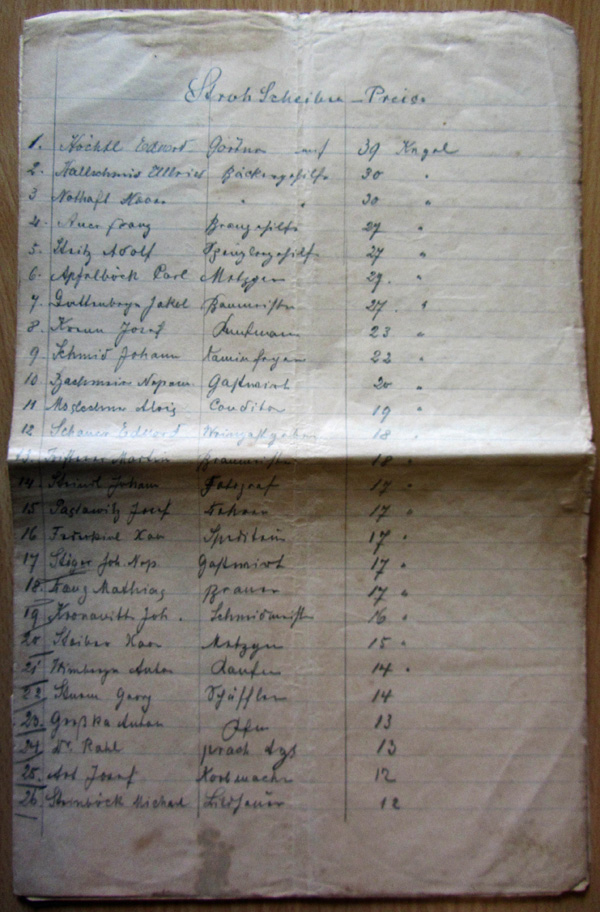 Stroh Scheiben - Preise
1. Höchtl Edvort Görtner auf 39 Kugel
2. Hallschmid Ullrich Bäckergehilfe 30 "
3 Nothaft Xaver " " 30 "
4. Auer Franz Braugehilfe 27 "
5. Adolf Spenglergehilfe 27 "
6. Apfelböck Carl Metzger 29. "
7. Guttenberger Jakob Baumeister 27. "
8 Josef Kaufmann 23 "
9 Schmid Johann Kaminfeger 22 "
10 Bachmeier Nepom. Gastwirt 20 "
11 Alois Conditor 19 "
12 Schauer Edvort Weingastgeber 18 "
13. Martin Braumeister 18 "
14. Steindl Johann Fotograf 17 "
15 Josef 17 "
16 Xav Spediteur 17 "
17 Stiger Joh. Nep. Gastwirt 17 "
18. Lang Mathias Brauer 17 "
19 Kronawitt Joh. Schmidmeister 16 "
20 Xaver Metzger 15 "
21 Wimberger Anton 14 "
22 Sturm Georg Schäffler 14
23. Großka Anton 13
24 Dr. Rahl prach Azt 13
25. Josef Korbmacher 12
26. Steinböck Michael Bildhauer 12